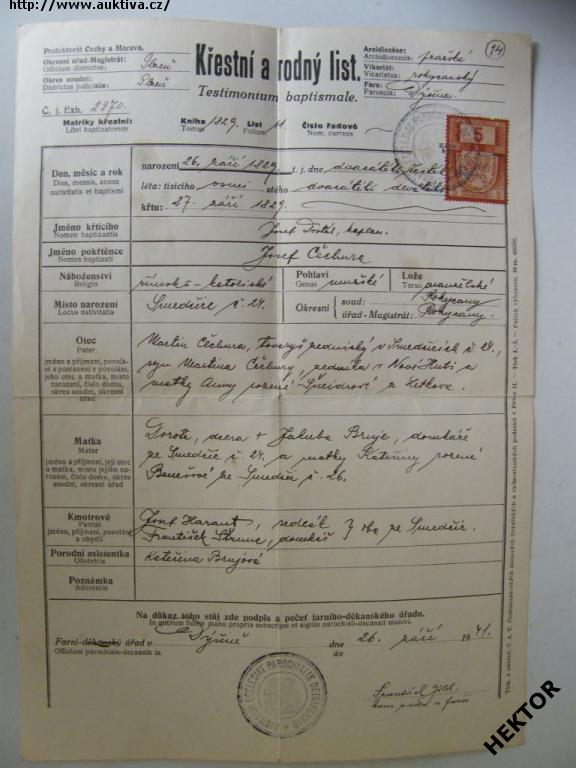 http://www.auktiva.cz/
14
Protektorát Čechy a Morava.
Okresní úřad-Magistrát:
Officium districtus:
Okres soudní:
Districtus judicialis:
Č. j. Exh. 2970.
Křestní a rodný list.
Testimonium baptismale.
Arcidiecése: pražská
Archidioecesis:
Vikariát: rokycanský
Vicariatus:
Fara: Dýšina
Paroecia:
Matriky křestní:
Libri baptizatorum
Kniha 1829. List 11. Číslo řadové
Tomus Folium Num. currens
5
Den, měsíc a rok
Dies, mensis, annus
nativitatis et baptismi
narození 26. září 1829 t. j. dne dvacátého šestého
léta: tisícího osmi stého dvacátého devátého
křtu: 27. září 1829.
Jméno křtícího
Nomen baptizantis
Josef Dostál, kaplan.
Jméno pokřtěnce
Nomen baptizati
Josef Čechura
Náboženství
Religio
římsko-katolické
Pohlaví mužské
Genus
Lože manželské
Torus
Místo narození
Locus nativitatis
Smědčice č. 24.
Okresní
soud: Rokycany
úřad-Magistrát: Rokycany.
Otec
Pater
jméno a příjmení, povolání
a postavení v povolání,
jeho otec a matka, místo
narození, číslo domu,
okres soudní, okresní úřad
Martin Čechura, tovaryš v Smědčicích č. 24.,
syn Martina Čechury, z Nové Huti a
matky Anny rozené z Letkova.
Matka
Mater
jméno a příjmení, její otec
a matka, místo jejího narození,
číslo domu, okres
soudní, okresní úřad
Dorota, dcera + Jakuba Bruje, domkáře
ze Smědčic č. 24, a matky Kateřiny rozené
Benešové ze Smědčic č. 26.
Kmotrové
Patrini
jméno, příjmení, povolání
a obydlí
Josef Harant, sedlák
František domkář oba ze Smědčic.
Porodní asistentka
Obstetrix
Kateřina Brujová
Poznámka
Adnotatio
Na důkaz toho stůj zde podpis a pečeť farního-děkanského úřadu.
In quorum fidem manu propria subscripsi et sigillo parochiali-decanali munivi.
Farní-děkanský úřad v Dýšině dne 26. září 1941.
Officium parochiale-decanale in die
SIGILLUM ECCLESIAE PAROCHIALIS
František
HEKTOR